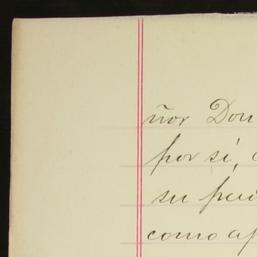 ñor Don
por sí,
su
como